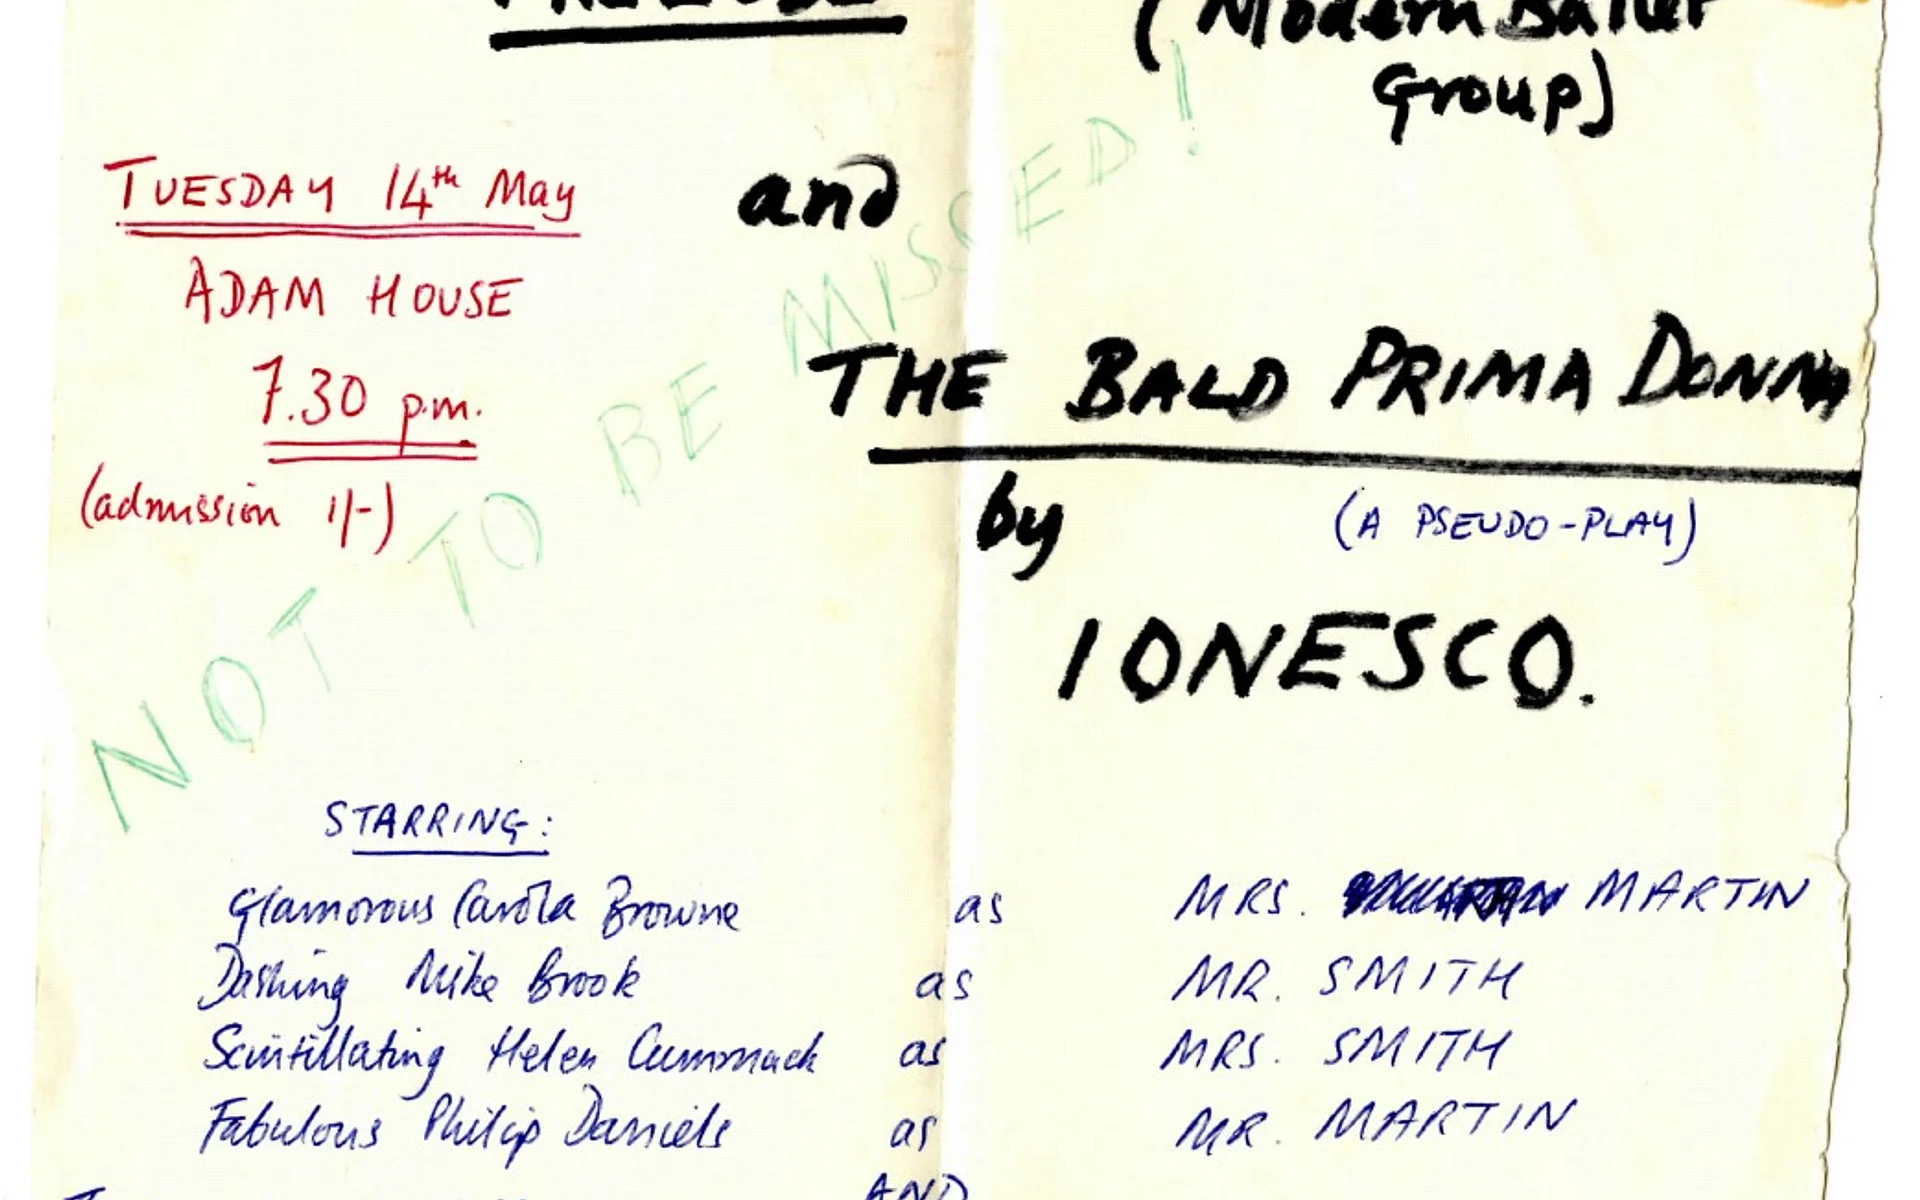 (Modern Ballet
Group)
TUESDAY 14th May
ADAM HOUSE
7.30 p.m.
(admission 1/-)
and
NOT TO BE MISSED!
THE BALD PRIMA DONNA
by
(A PSEUDO-PLAY)
IONESCO.
STARRING:
Glamorous Carola Browne as MRS. MARTIN
Dashing Mike Brook as MR. SMITH
Scintillating Helen Cummack as MRS. SMITH
Fabulous Philip Daniels as MR. MARTIN
AND